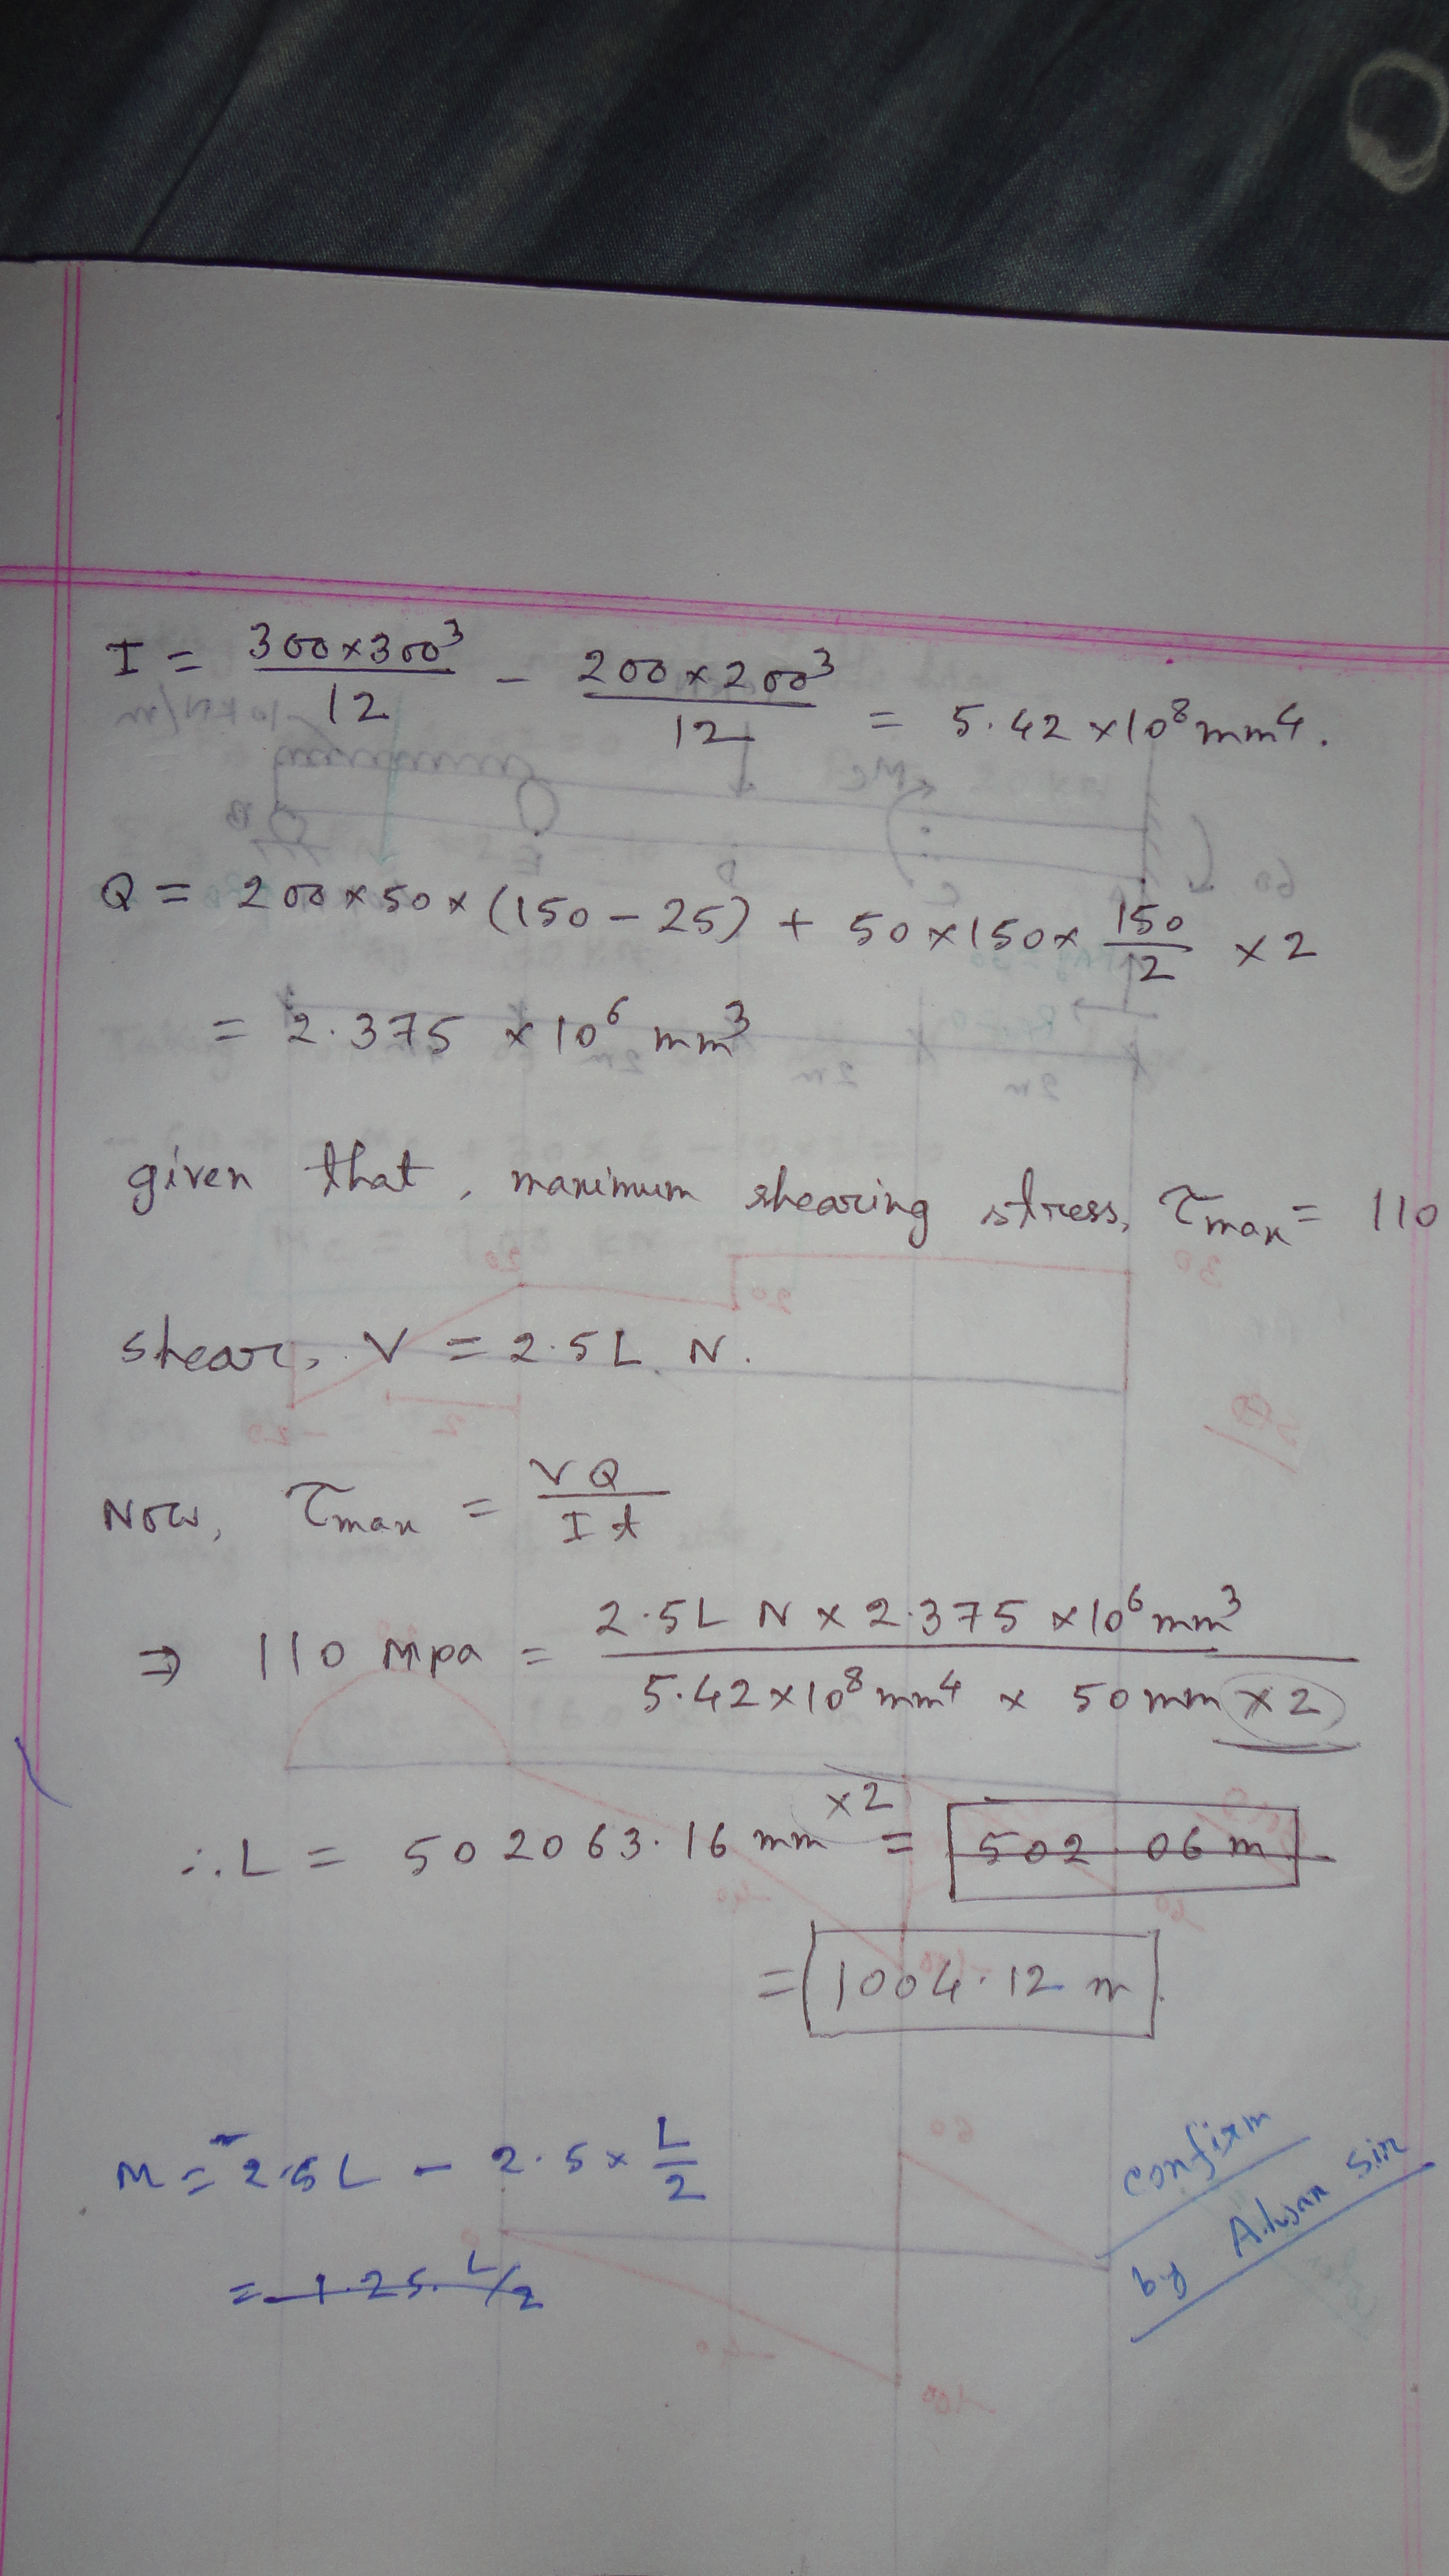 I = 300×300³/12 - 200×200³/12 = 5.42 ×10⁸ mm⁴.
Q = 200×50×(150-25) + 50×150×150/2 ×2
= 2.375 ×10⁶ mm³
given that, maximum shearing stress, τmax = 110
shear, V = 2.5L N.
Now, τmax = VQ/It
⇒ 110 Mpa = 2.5L N × 2.375 ×10⁶ mm³ / 5.42×10⁸ mm⁴ × 50mm ×2
∴ L = 502063.16 mm ×2 = 502.06 m
= 1004.12 m.
M = 2.5L - 2.5× L/2
= 1.25 L/2
confirm
by Sir